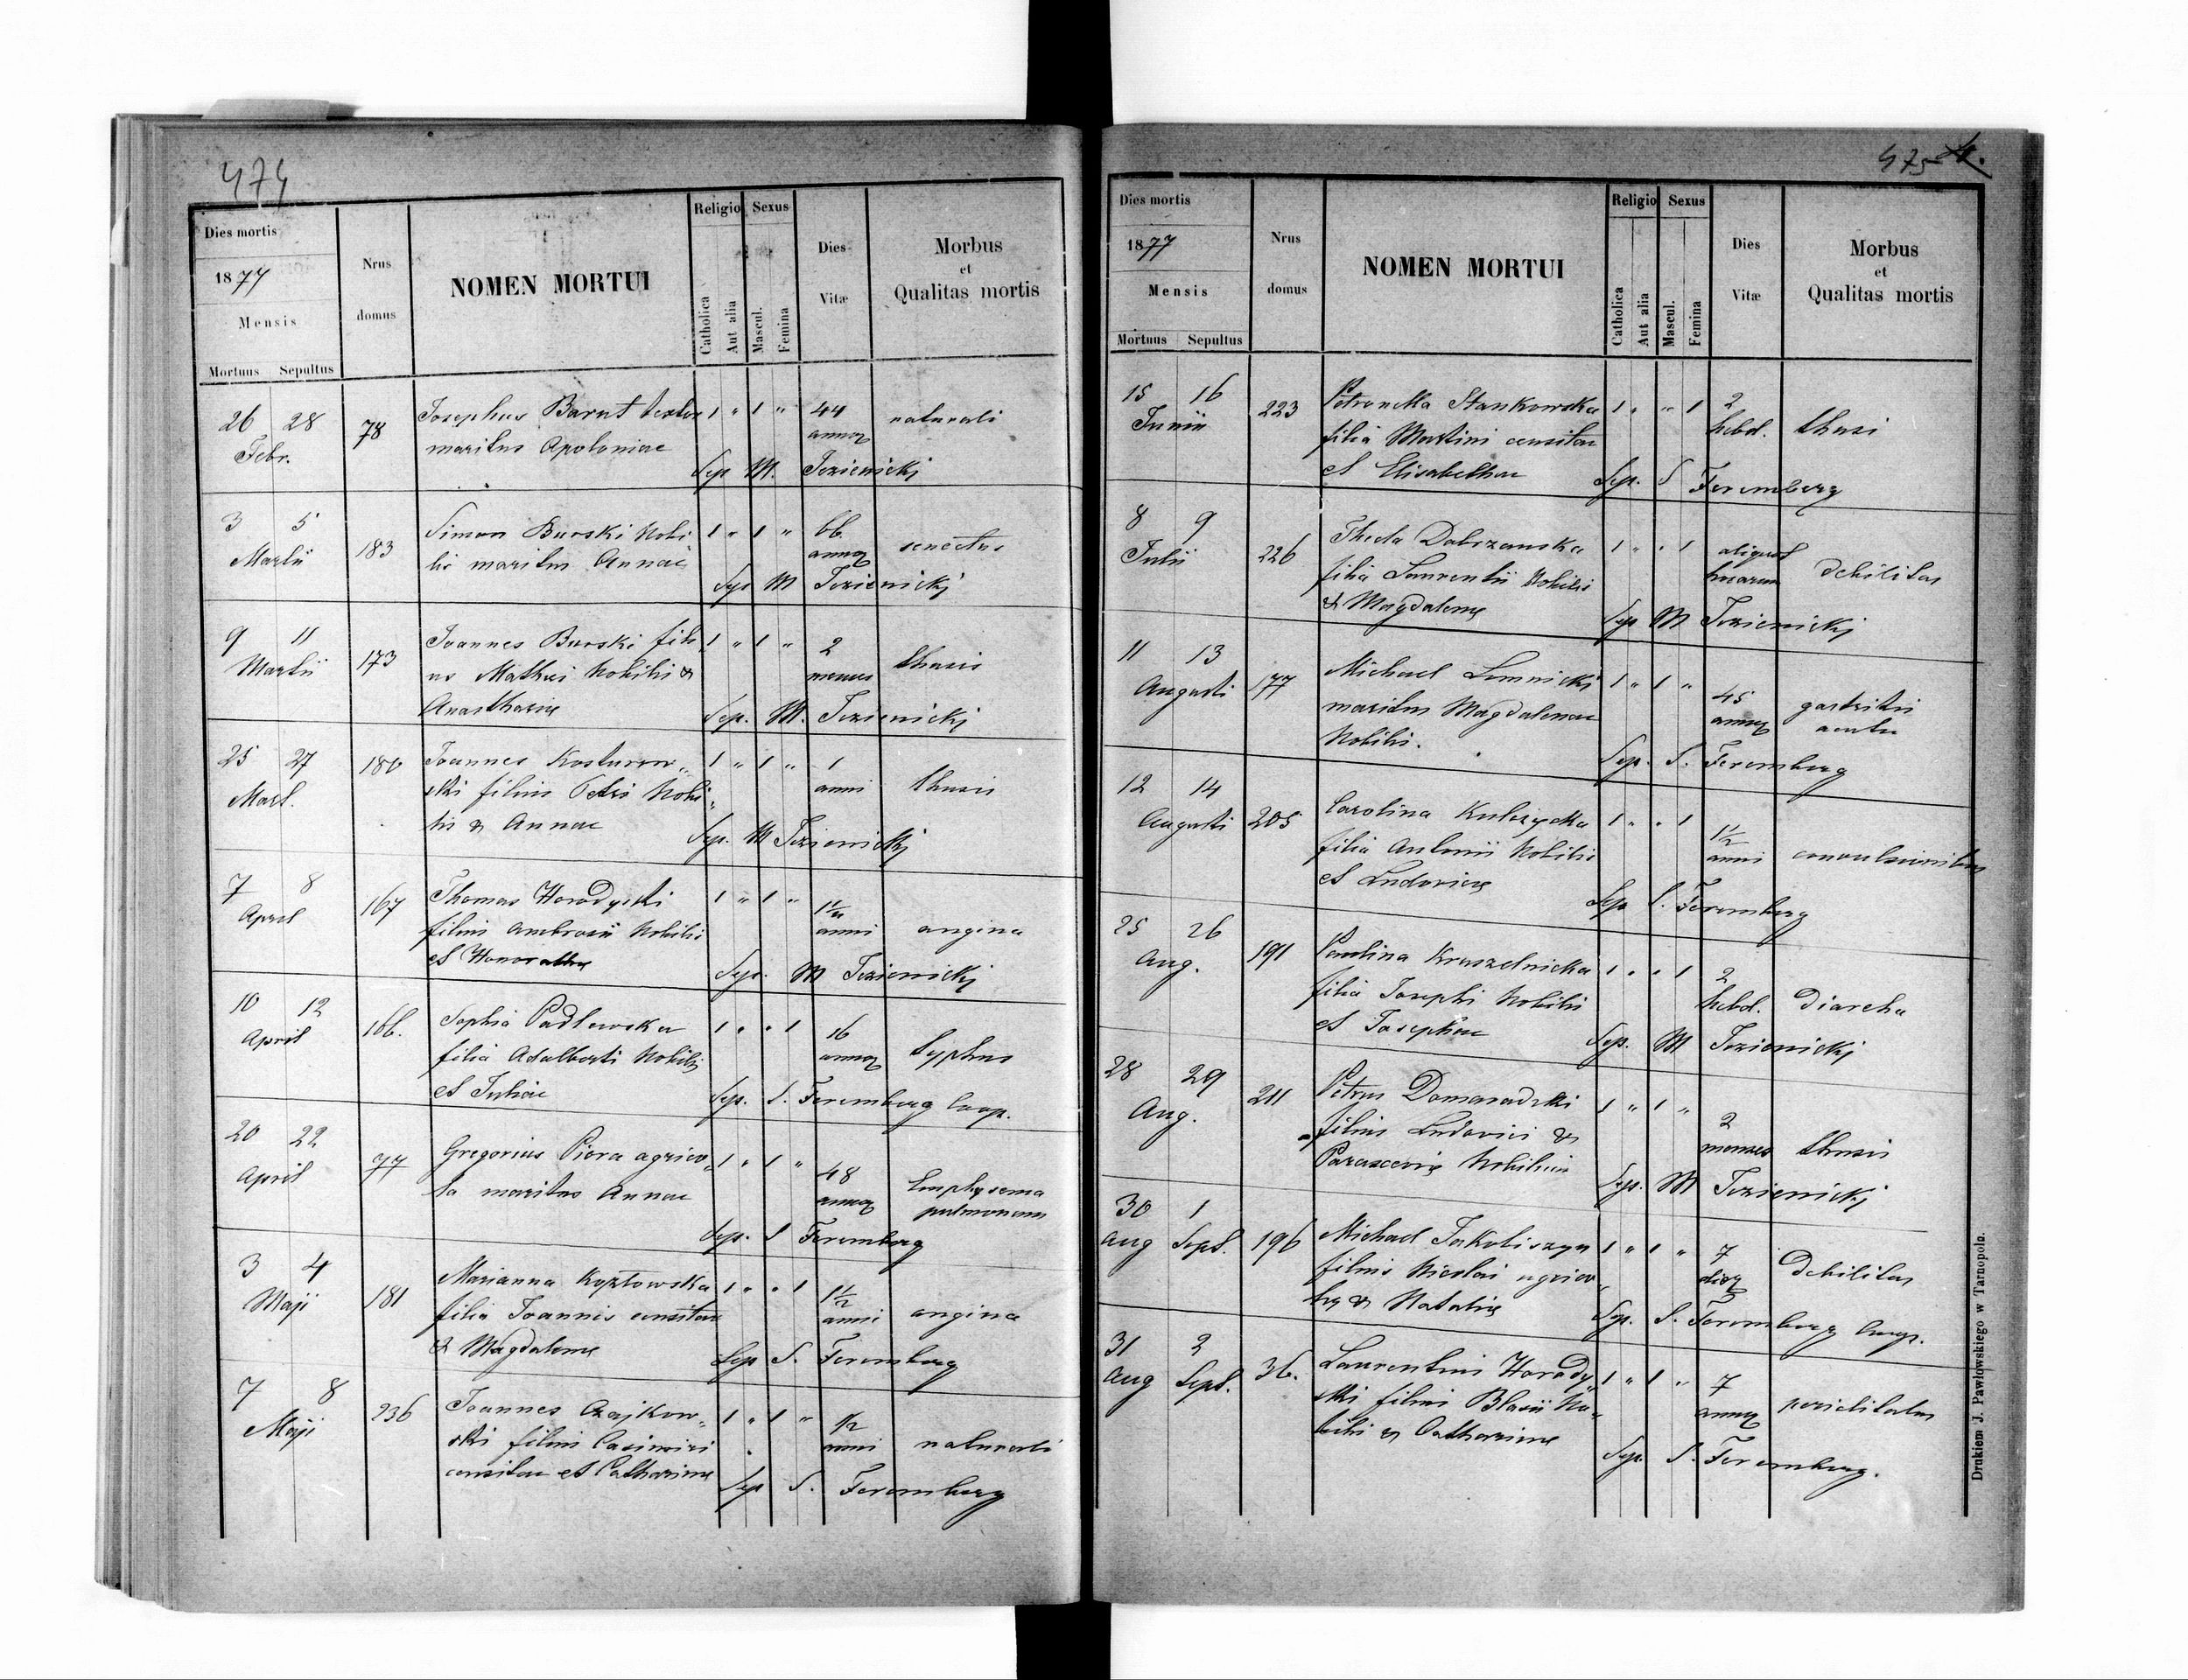 474
Dies mortis
1877
Mensis
Mortuus Sepultus
Nrus domus
NOMEN MORTUI
Religio
Catholica
Aut alia
Sexus
Mascul.
Femina
Dies Vitæ
Morbus
et
Qualitas mortis
26 28 78 Josephus Barut textor 1 " 1 " 44 naturali
Febr. maritus Apoloniae annor
Sep M. Jezienickj
3 5 183 Simon Burski Nobi 1 " 1 " 66 senectus
Martii lis maritus Annae annor
Sep M Jezienickj
9 11 173 Joannes Burski fili 1 " 1 " 2 thusis
Martii us Mathei Nobilis &
menses
Anasthasiae
Sep. M. Jezienickj
25 27 180 Joannes Kosturow„ 1 " 1 " 1 thusis
Mart. ski filius Petri Nobi„ anni
lis & Annae
Sep. M Jezienickj
7 8 167 Thomas Horodyski 1 " 1 " angina
April filius Ambrosii Nobilis anni
et Honorathae
Sep. M Jezienickj
10 12 166. Sophia Padlewska 1 " " 1 16 typhus
April filia Adalberti Nobilis annor
et Juliae
Sep. S. Feremberg Coop.
20 22 77 Gregorius Piora agrico„ 1 " 1 " 48 Emphysema
April la maritus Annae annor pulmonum
Sep. S Feremberg
3 4 181 Marianna Kozłowska 1 " " 1 1½ angina
Maji filia Joannis consitae anni
& Magdalenae
Sep S. Feremberg
7 8 236 Joannes Czajkow„ 1 " 1 " ½ naturali
Maji ski filius Casimiri anni
consitae et Catharinae
Sep S. Feremberg
475
Dies mortis
1877
Mensis
Mortuus Sepultus
Nrus domus
NOMEN MORTUI
Religio
Catholica
Aut alia
Sexus
Mascul.
Femina
Dies Vitæ
Morbus
et
Qualitas mortis
15 16 223 Petronella Stankowska 1 " " 1 2 thusi
Junii filia Martini consitae hebd.
et Elisabethae
Sep. S Feremberg
8 9 226 Thecla Dobrzanska 1 " " 1 aliquot debilitas
Julii filia Laurentii Nobilis horarum
& Magdalenae
Sep M Jezienickj
11 13 177 Michael Lomnickj 1 " 1 " 45 gastritis
Augusti maritus Magdalenae annor acuta
Nobilis.
Sep. S. Feremberg
12 14 205 Carolina Kulczycka 1 " " 1 1½ convulsionibus
Augusti filia Antonii Nobilis anni
et Ludovicae
Sep S. Feremberg
25 26 191 Paulina Kruszelnicka 1 " " 1 2 diareha
Aug. filia Josephi Nobilis hebd.
et Josephae
Sep. M Jezienickj
28 29 211 Petrus Domaradzki 1 " 1 " 2 thusis
Aug. filius Ludovici & menses
Parasceviae Nobilium
Sep. M Jezienickj
30 1 196 Michael Jakoliszyn 1 " 1 " 7 debilitas
Aug Sept. filius Nicolai agrico„ dier
lae & Nataliae
Sep. S. Feremberg Coop.
31 2 36. Laurentius Horody„ 1 " 1 " 7
Aug Sept. ski filius Blasii No„ annor
bilis & Catharinae
Sep. S. Feremberg.
Drukiem J. Pawłowskiego w Tarnopolu.